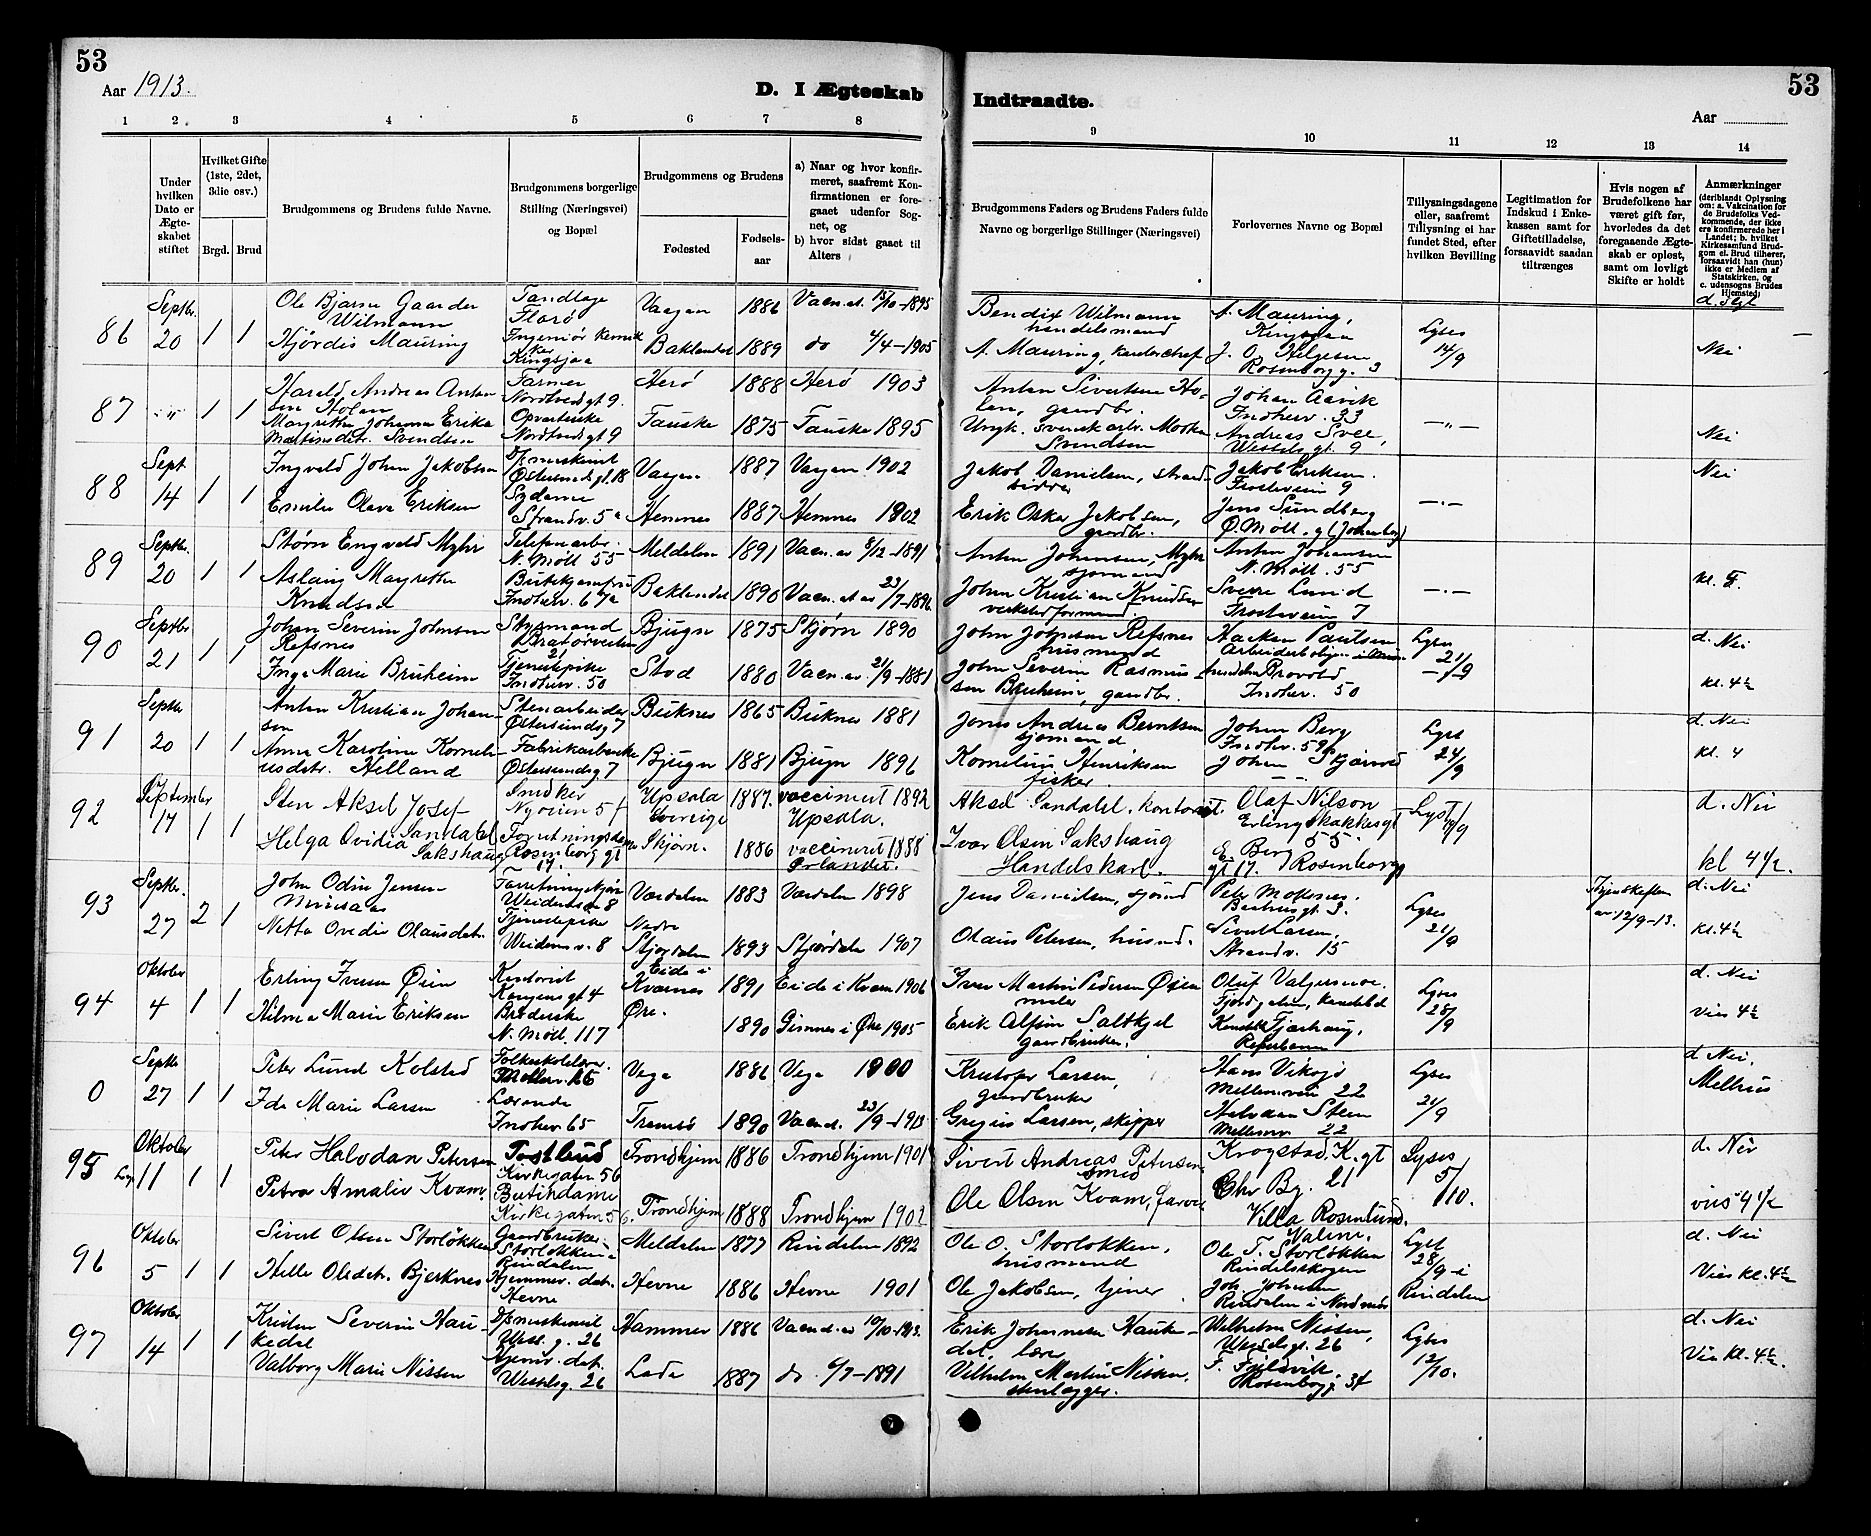 53
53
Aar 1913.
D. I Ægteskab Indtraadte.
Aar
1 2 3 4 5 6 7 8 9 10 11 12 13 14
Under hvilken Dato er Ægteskabet stiftet
Hvilket Gifte (1ste, 2det, 3die osv.)
Brgd. Brud
Brudgommens og Brudens fulde Navne.
Brudgommens borgerlige Stilling (Næringsvei) og Bopæl
Brudgommens og Brudens
Fødested
Fødselsaar
a) Naar og hvor konfirmeret, saafremt Konfirmationen er foregaaet udenfor Sognet, og
b) hvor sidst gaaet til Alters
Brudgommens Faders og Brudens Faders fulde Navne og borgerlige Stillinger (Næringsvei)
Forlovernes Navne og Bopæl
Tillysningsdagene eller, saafremt Tillysning ei har fundet Sted, efter hvilken Bevilling
Legitimation for Indskud i Enkekassen samt for Giftetilladelse, forsaavidt saadan tiltrænges
Hvis nogen af Brudefolkene har været gift før, hvorledes da det foregaaende Ægteskab er opløst, samt om lovligt Skifte er holdt
Anmærkninger (deriblandt Oplysning om: a. Vakcination for de Brudefolks Vedkommende, der ikke ere konfirmerede her i Landet; b. hvilket Kirkesamfund Brudgom el. Brud tilhører, forsaavidt han (hun) ikke er Medlem af Statskirken, og c. udensogns Brudes Hjemsted)
86 Septbr. 20 1 1
Ole Bjarne Gaarder Wilmann Tandlæge Florø Vaagan 1886 Bendix Wilmann handelsmand A. Mauring,
Hjørdis Mauring Baklandet 1889 do 4/4-1905 A. Mauring, J. O. Helgesen Rosenborgg. 3 Lyses 14/9 Nei
87 -"- 1 1
Harald Andreas Antonsen Holen Farmer Nordtvedtgt 9. Herø 1888 Herø 1903 Anton Sivertsen Holen, gaardbr. Johan Aavik Indherv. 33
Margrethe Johanna Erika Svendsen Opvarterske Nordtvedtgt 9 Fauske 1875 Fauske 1895 Svendsen Andreas Svee, Wesselsgt. 9 -"- Nei
88 Sept 14 1 1
Ingvald Johan Jakobsen Østersundsgt. 18 Vaagan 1887 Vaagan 1902 Jakob Danielsen, strandsidder Jakob Eriksen. Frostaveien 9 Nei
Emilie Olava Eriksen Sydame Strandv. 5a Hemnes 1887 Hemnes 1902 Erik Oskar Jakobsen, gaardbr. Jens Sundberg Ø. Møll. g -"-
89 Septbr. 20 1 1
Størn Engvald Myhr Telefonarbr. N. Møll 55 Meldalen 1891 Vacn. av 8/12-1891 Anton Johansen, Myhr sjømand Anton Johansen N. Møll. 55
Aslaug Margrethe Knudsen Indherv. 67a Baklandet 1890 Vacn. at av 23/7-1896 Johan Kristian Knudsen verkstedformand. Sverre Lund Frostaveien 7 -"- kl. 5.
90 Septbr 21 1 1
Johan Severin Johnsen Refsnes Bratørveiten 21 Bjugn 1875 Skjørn 1890 John Johnsen Refsnes husmand Haakon Paulsen Lyses 21/9 d. Nei
Inga Marie Bruheim Tjenestepike Indherv. 50 Stod 1880 Vacn. av 21/9-1881 John Severin Rasmussen Bruheim, gaardbr. Indherv. 50 kl. 4½
91 Septbr 20 1 1
Anton Kristian Johansen Stenarbeider Østersundsg 7 Buknes 1865 Buknes 1881 Jonas Andreas Berntsen sjømand Johan Berg Indhv. 59 Lyst 24/9 d. Nei
Anna Karoline Korneliusdtr. Helland Fabrikarbeiderske Østersundsg 7 Bjugn 1881 Bjugn 1896 Kornelius Henriksen fisker Johan Skjærvø kl. 4
92 September 17 1 1
Sten Aksel Josef Sandahl Snedker Nyveien 5f Upsala Sverige 1887. vaccinert 1892 Upsala. Aksel Sandahl. kontorist. Olaf Nilson Erling Skakkesgt 55 Lyst d. Nei
Helga Ovidia Sakshaug Forretningsdame Rosenborg gt 17. Skjørn. 1886 vaccineret 1888 Ørlandet. Ivar Olsen Sakshaug Handelskarl. E. Berg Rosenborg gt 17. kl 4½.
93 Septbr. 27 2 1
John Odin Jensen Minsaas Weidemv. 8 Værdalen 1883 Værdalen 1898 Jens Danielsen, Peter Moksnes. Bakkegt 3. Lyses 21/9 Skjøn skiften av 12/9-13. d. Nei
Netta Ovedie Olausdtr. Tjenestepike Weidemv. 8 Nedre Stjørdalen 1893 Stjørdalen 1907 Olaus Petersen, husmd. Sivert Larsen, Strandv. 15 kl. 4½
94 Oktober 4 1 1
Erling Iversen Øien Kontorist Kongensgt 4 Eide i Kværnes 1891 Eide i Kvern 1906 Iver Martin Pedersen Øien maler Oluf Valgermoe. Fjordgaten, Lyses 28/9 d. Nei
Hilma Marie Eriksen Broderske N. Møll. 117 Øre. 1890 Gimnes i Øre 1905 Erik Alfson Saltkjel gaardbruker. Reperbanen Vies 4½
0 Septbr 27 1 1
Peter Lund Kolstad Folkeskolelær. Vega 1886 Vega 1900 Kristofer Larsen, gaardbruker Hans Viksjø Mellemveien 22 Lyses 21/9 d Nei. Melhus
Ida Marie Larsen Lærerinde Indherv. 65 Tromsø 1890 Vacn. d. 23/9-1913 Gregius Larsen, skipper Halvdan Steen Mellemv 22
95 Oktober 11 1 1
Peter Halvdan Petersen Postbud Kirkegaten 56 Trondhjem 1886 Trondhjem 1901 Sivert Andreas Petersen smed Krogstad, K. gt 21 Lyses 5/10. d. Nei
Petra Amalie Kvam. Butikdame Kirkegaten 56. Trondhjem 1888 Trondhjem 1902 Ole Olsen Kvam, farver Chr By. Villa Rosenlund. vies 4½
96 Oktober 5 1 1
Sivert Olsen Storløkken Gaardbruker Storløkken i Rindalen Meldalen 1877 Rindalen 1892 Ole O. Storløkken, husmand Ole T. Storløkken Rindalsskogen Lyst 28/9 i Rindalen d. Nei
Hille Olsdtr. Bjerknes Hjemmev. dat. Hevne Hevne 1886 Hevne 1901 Ole Jakobsen, Joh. Johnsen Rindalen i Nordmør Vies kl. 4½
97 Oktober 14 1 1
Kristen Severin Haukedal Wessl. g. 26 Hammer 1886 Vacn d. av 10/10-1913. Erik Johannesen Haukedal, lærer Wilhelm Nissen, Wesselsgt. 26 Lyses 12/10. d. Nei
Valborg Marie Nissen Hjemv. dat. Wesselsg. 26 Lade 1887 do. 6/7-1891 Vilhelm Martin Nissen, stenlægger. Rosenborgg. 34 Vies kl. 4½.